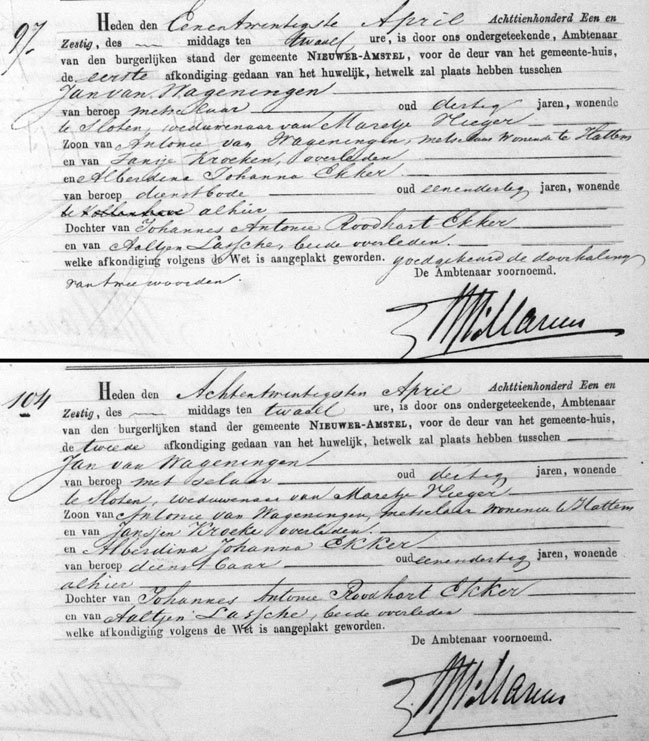 97 Heden den Eenentwintigste April Achttienhonderd Een en
Zestig, des — middags ten twaalf ure, is door ons ondergeteekende, Ambtenaar
van den burgerlijken stand der gemeente NIEUWER-AMSTEL, voor de deur van het gemeente-huis,
de eerste afkondiging gedaan van het huwelijk, hetwelk zal plaats hebben tusschen
Jan van Wageningen
van beroep metselaar oud dertig jaren, wonende
te Sloten, weduwenaar van Maretje Hieger
Zoon van Antonie van Wageningen, metselaar wonende te Hattem
en van Jansje Kroeken, overleden
en Alberdina Johanna Ekker
van beroep dienstbode oud eenendertig jaren, wonende
te alhier
Dochter van Johannes Antonie Roodhart Ekker
en van Aaltjen Lassche, beide overleden.
welke afkondiging volgens de Wet is aangeplakt geworden. goedgekeurd de doorhaling
van twee woorden.
De Ambtenaar voornoemd.
104 Heden den Achtentwintigsten April Achttienhonderd Een en
Zestig, des — middags ten twaalf ure, is door ons ondergeteekende, Ambtenaar
van den burgerlijken stand der gemeente NIEUWER-AMSTEL, voor de deur van het gemeente-huis,
de tweede afkondiging gedaan van het huwelijk, hetwelk zal plaats hebben tusschen
Jan van Wageningen
van beroep metselaar oud dertig jaren, wonende
te Sloten, weduwenaar van Maretje Hieger
Zoon van Antonie van Wageningen, metselaar wonende te Hattem
en van Jansjen Kroeke overleden.
en Alberdina Johanna Ekker
van beroep dienstbaar oud eenendertig jaren, wonende
alhier
Dochter van Johannes Antonie Roodhart Ekker
en van Aaltjen Lassche, beide overleden
welke afkondiging volgens de Wet is aangeplakt geworden.
De Ambtenaar voornoemd.